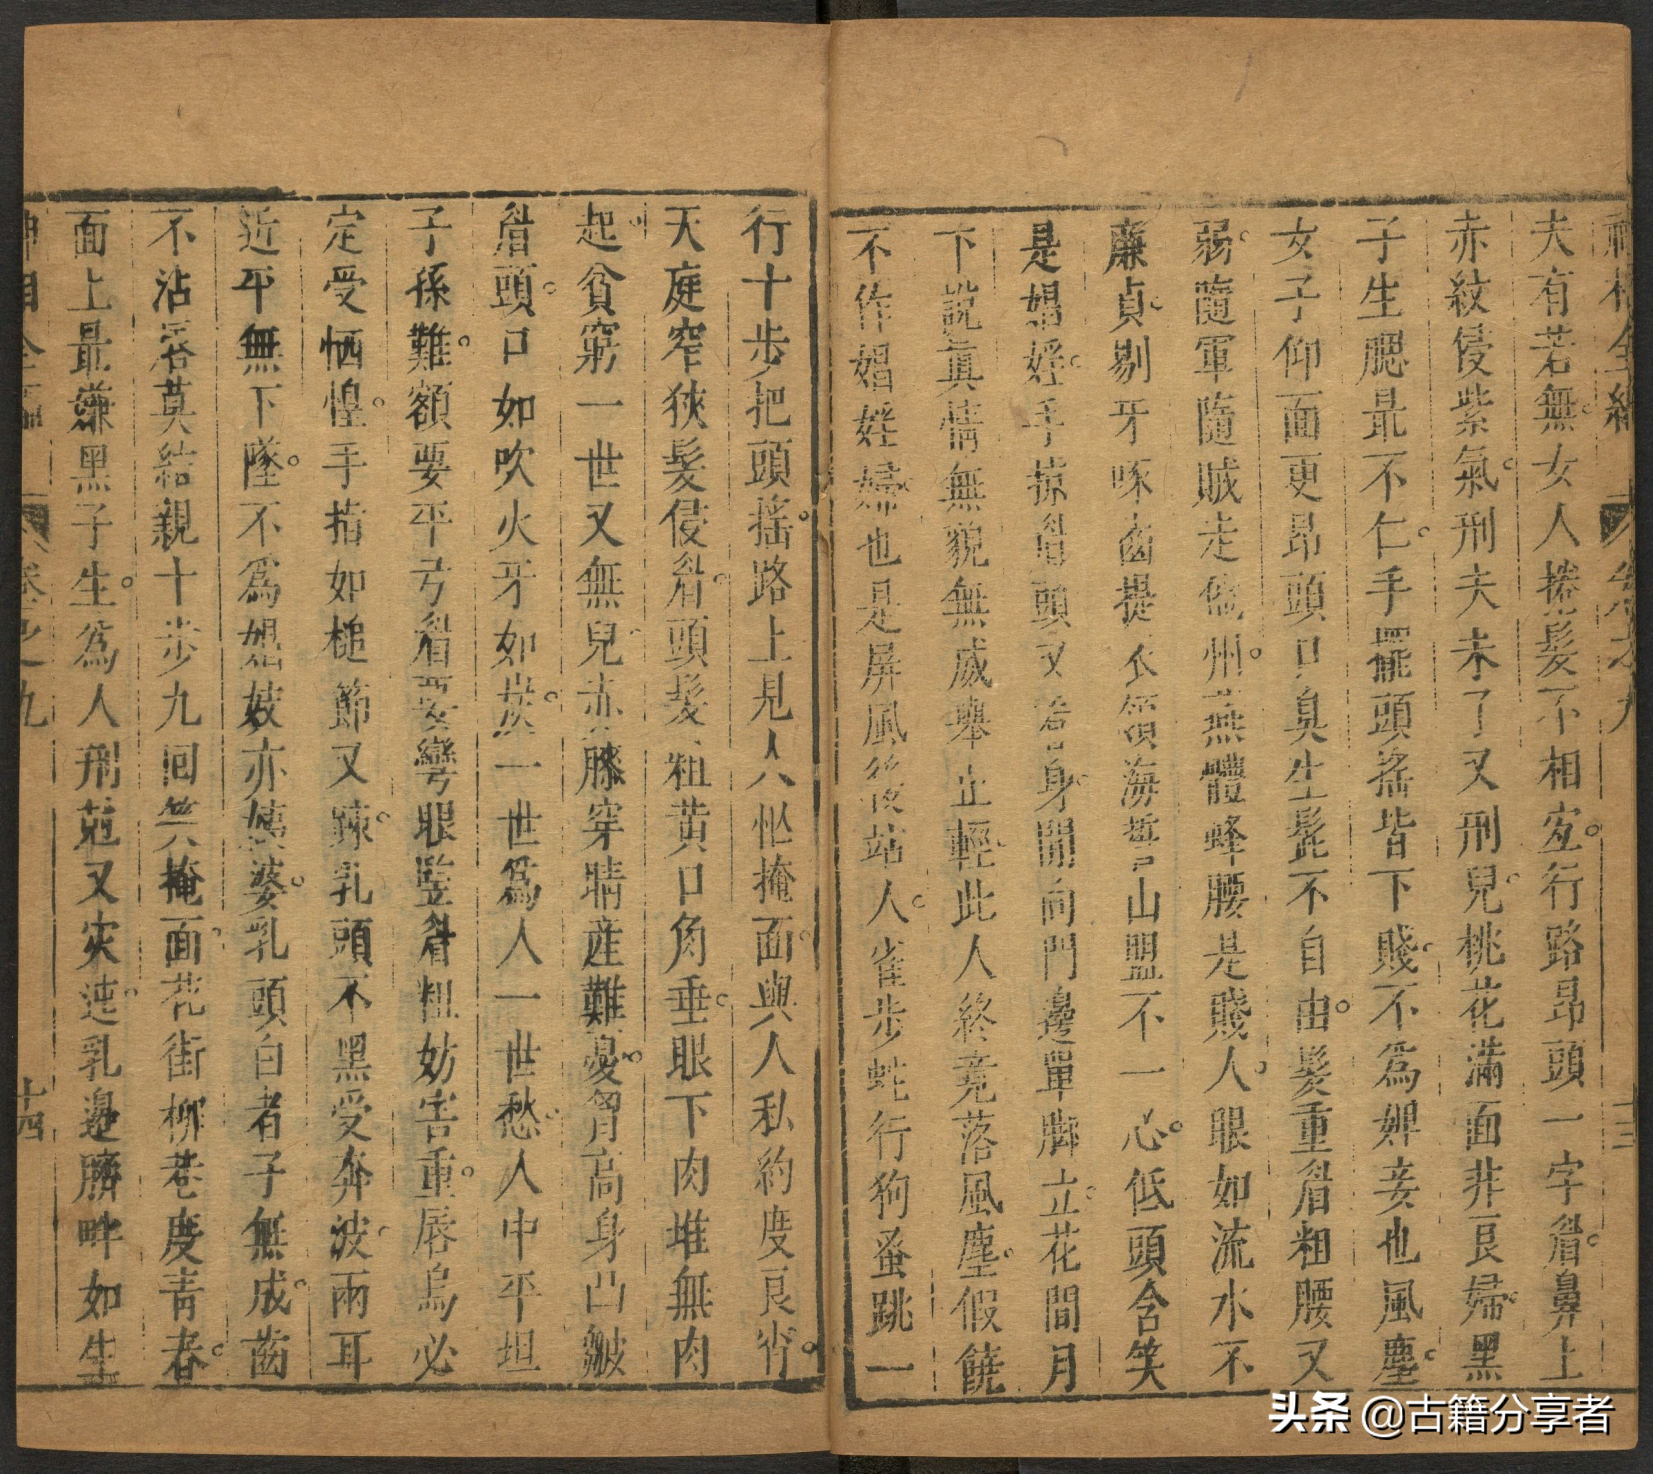 夫有若無女人捲髮不相宜行路昂頭一字眉鼻上
赤紋侵紫氣刑夫未了又刑兒桃花滿面非良婦黑
子生腮最不仁手擺頭搖皆下賤不為婢妾也風塵
女子仰面更昂頭口臭生髭不自由髮重眉粗腰又
弱隨軍隨賊走他州燕體蜂腰是賤人眼如流水不
廉貞剔牙啄齒提衣領海誓山盟不一心低頭含笑
是娼婬手掠眉頭又治身閒向門邊單脚立花間月
下說真情無貌無威舉止輕此人終竟落風塵假饒
不作娼婬婦也是屏風後站人雀步蛇行狗蚤跳一
行十步把頭搖路上見人忙掩面與人私約度良宵
天庭窄狹髮侵眉頭髮粗黃口角垂眼下肉堆無肉
起貧窮一世又無兒赤膝穿睛産難憂胷高身凸皺
眉頭口如吹火牙如炭一世為人一世愁人中平坦
子孫難額要平弓眉要彎眼竪眉粗妨害重唇烏必
定受恓惶手指如槌節又疎乳頭不黑受奔波兩耳
近平無下墜不為娼妓亦姨婆乳頭白者子無成齒
不沾唇莫結親十步九回笑掩面花街柳巷度青春
面上最嫌黑子生為人刑尅又灾迍乳邊臍畔如生
神相全編 卷之九 十四